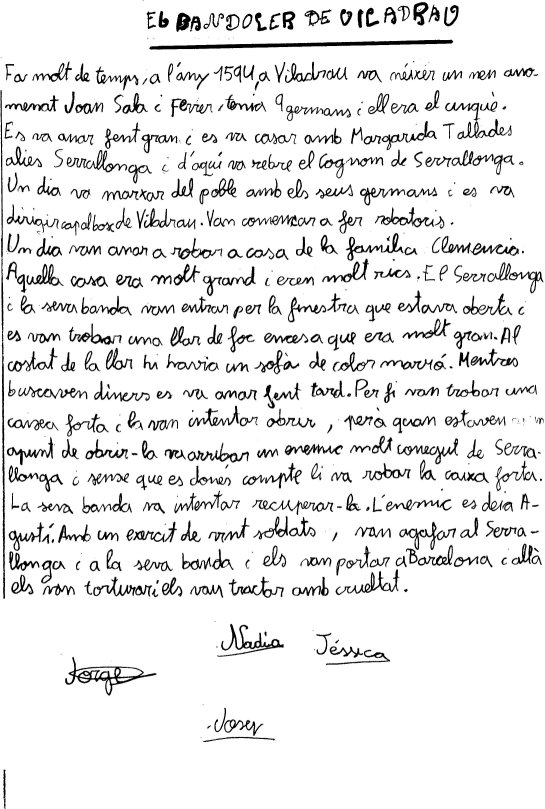 EL BANDOLER DE VILADRAU
Fa molt de temps, a l'ány 1594, a Viladrau va néixer un nen ano-
menat Joan Sala i Ferrer, tenia 9 germans i ell era el cinquè.
Es va anar fent gran i es va casar amb Margarida Tallades
alies Serrallonga i d'aquí va rebre el Cognom de Serrallonga.
Un dia va marxar del poble amb els seus germans i es va
dirigir cap al bosc de Viladrau. Van comencar a fer robatoris.
Un dia van anar a robar a casa de la família Clemencia.
Aquella casa era molt grand i eren molt rics. El Serrallonga
i la seva banda van entrar per la finestra que estava oberta i
es van trobar una llar de foc encesa que era molt gran. Al
costat de la llar hi havia un sofà de color marró. Mentres
buscaven diners es va anar fent tard. Per fi van trobar una
caixca forta i la van intentar obrir, però quan estaven a un
apunt de obrir-la va arribar un enemic molt conegut de Serra-
llonga i sense que es donés compte li va robar la caixa forta.
La seva banda va intentar recuperar-la. L'enemic es deia A-
gustí. Amb un exercit de vint soldats, van agafar al Serra-
llonga i a la seva banda i els van portar a Barcelona i allà
els van torturar i els van tractar amb crueltat.
Nadia Jéssica
Jorge